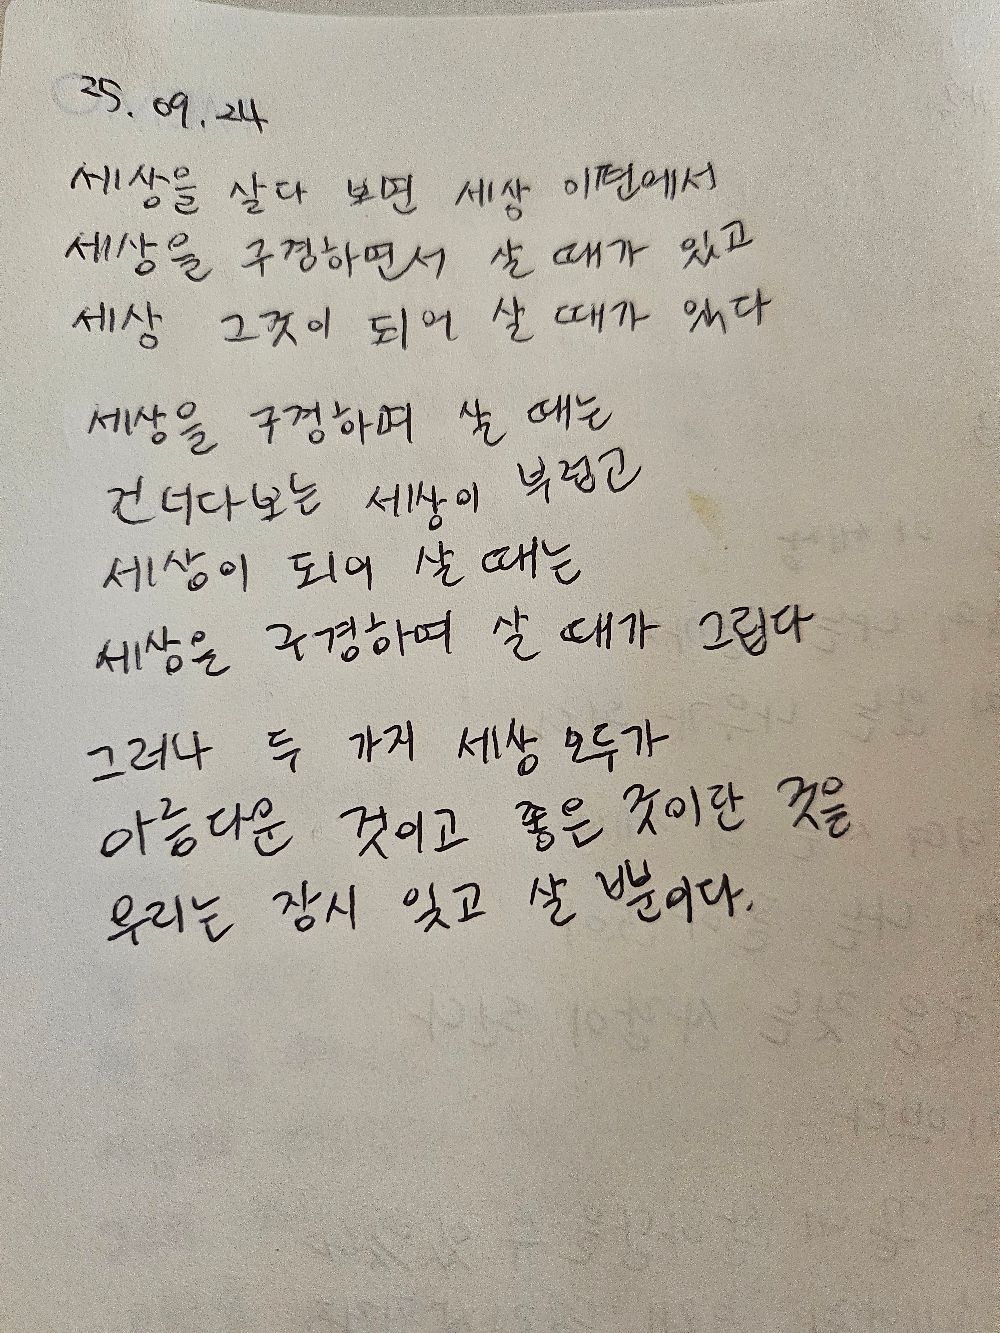 25. 09. 24
세상을 살다 보면 세상 이편에서
세상을 구경하면서 살 때가 있고
세상 그것이 되어 살 때가 있다
세상을 구경하며 살 때는
건너다보는 세상이 부럽고
세상이 되어 살 때는
세상을 구경하며 살 때가 그립다
그러나 두 가지 세상 모두가
아름다운 것이고 좋은 것이란 것을
우리는 잠시 잊고 살 뿐이다.